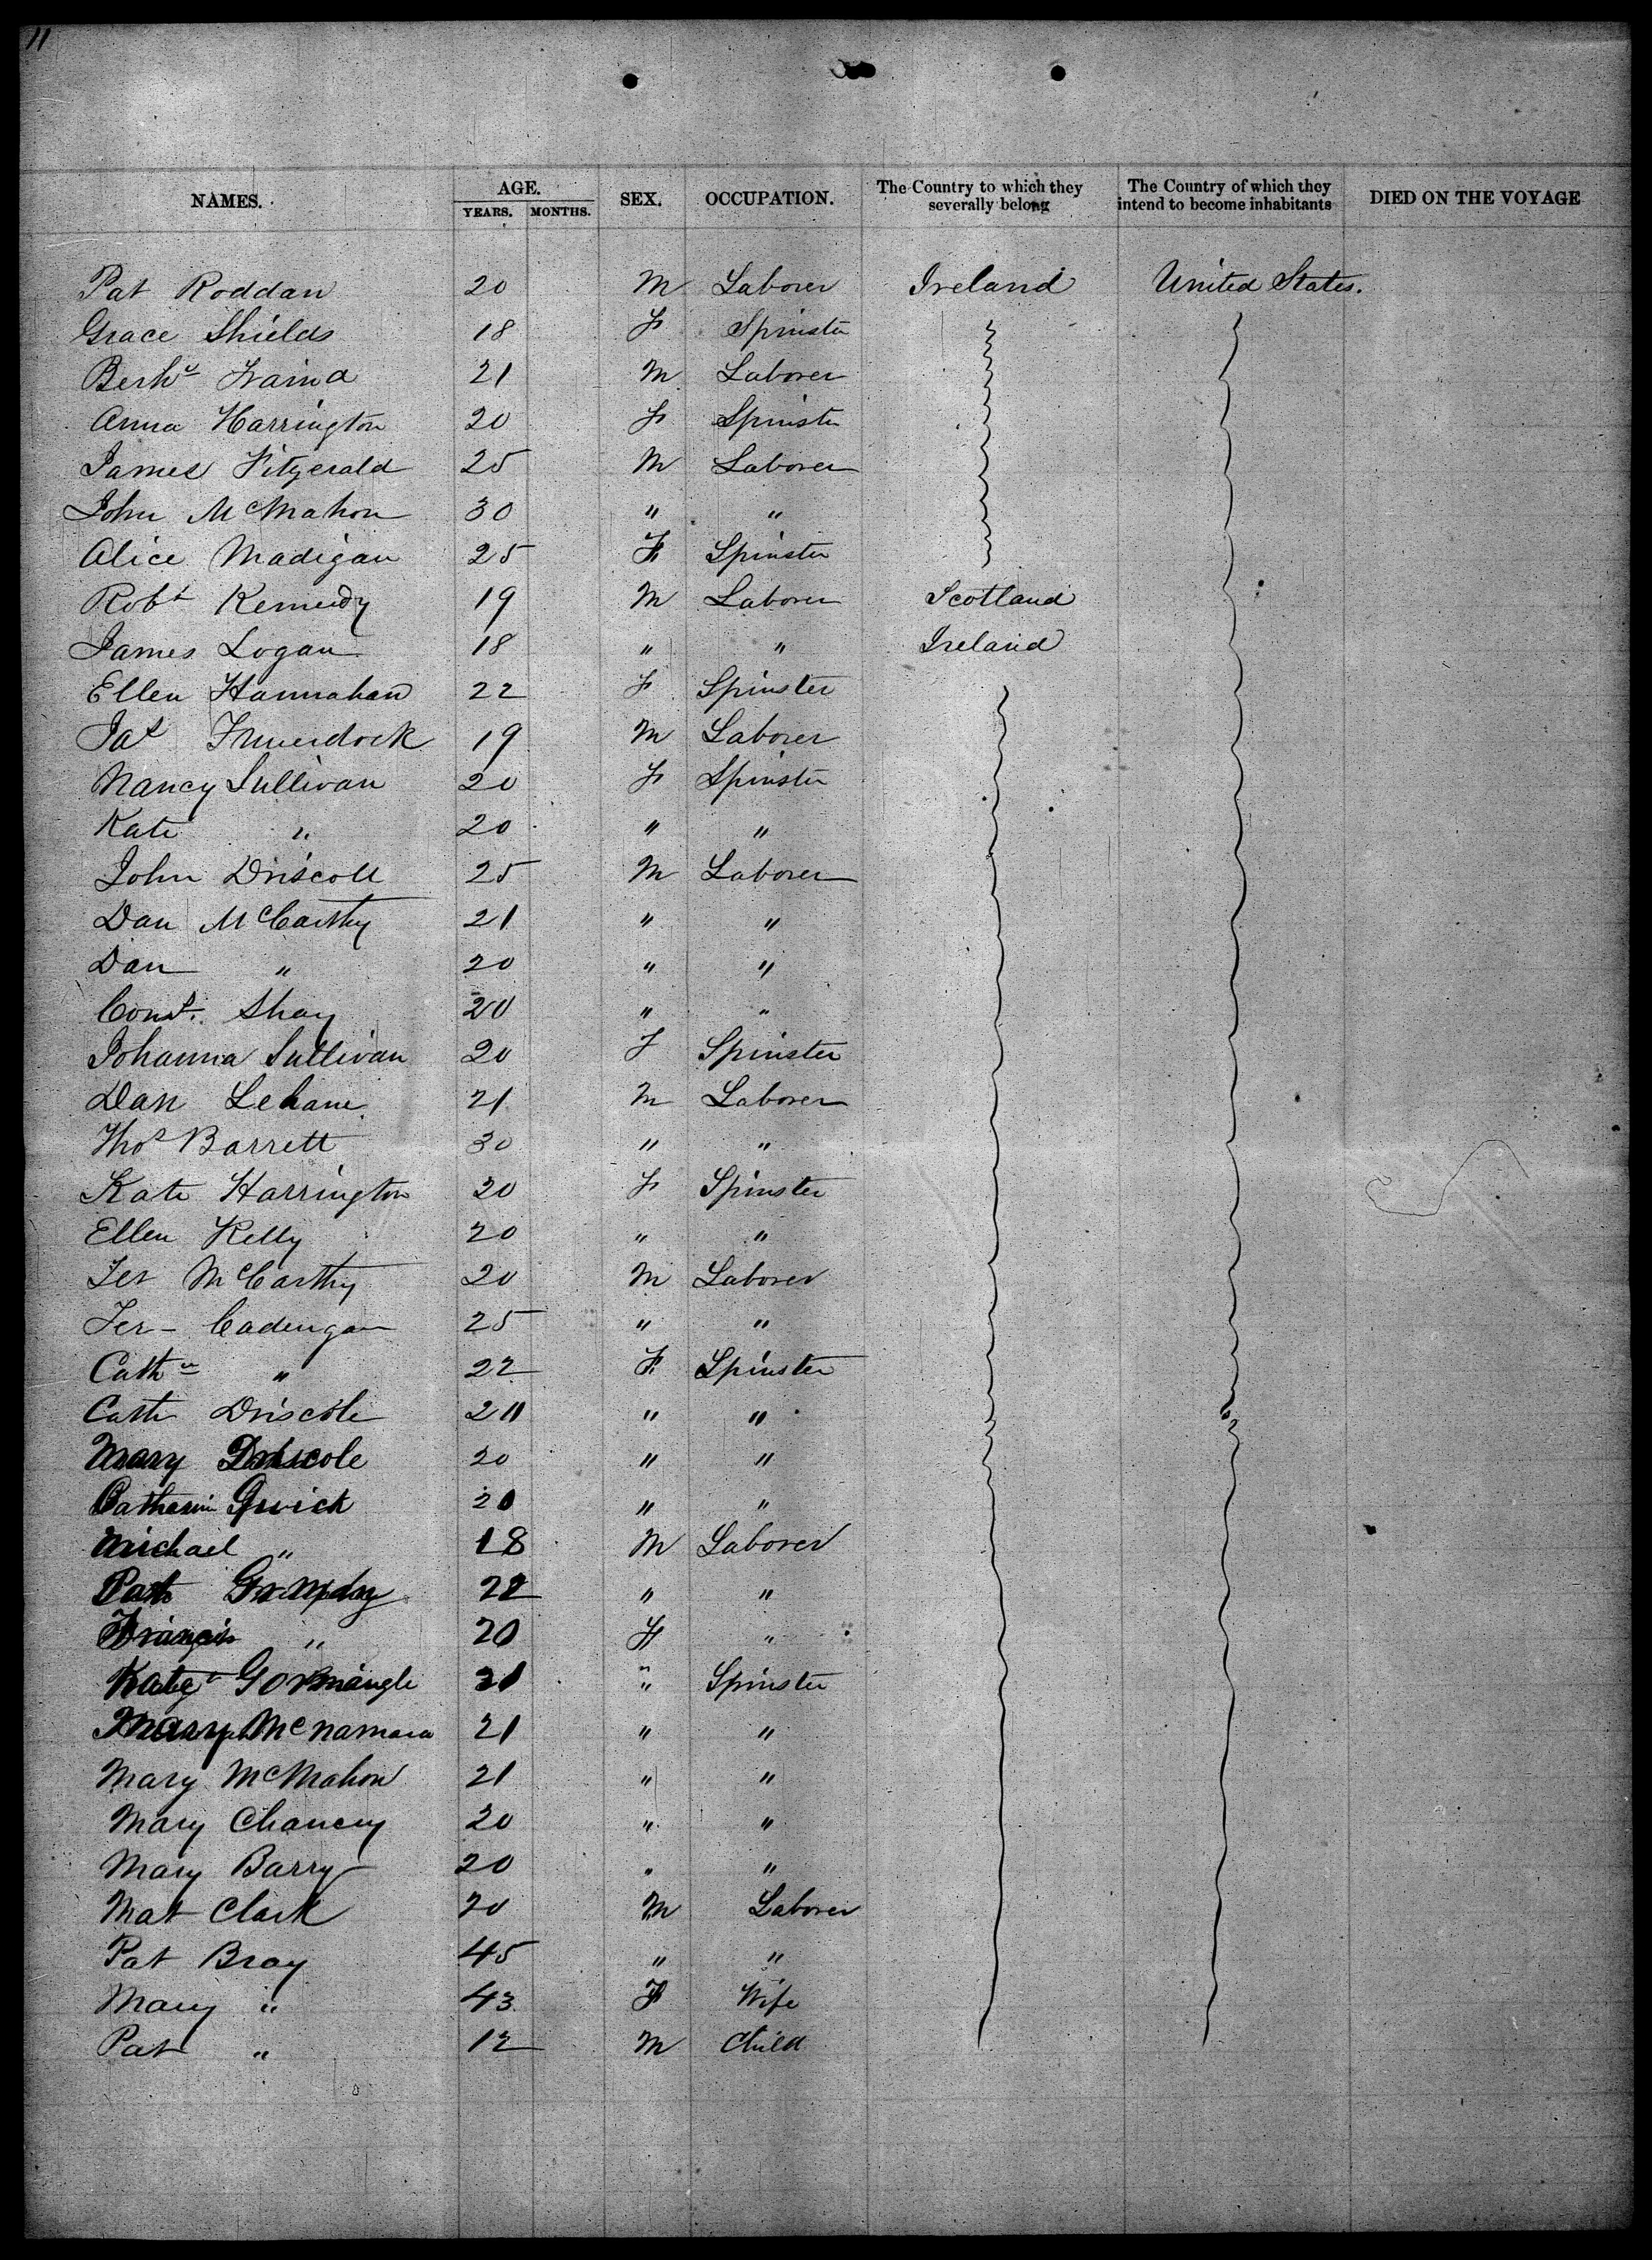 11
NAMES. AGE. SEX. OCCUPATION. The Country to which they severally belong The Country of which they intend to become inhabitants DIED ON THE VOYAGE
YEARS. MONTHS.
Pat Roddan 20 M Laborer Ireland United States.
Grace Shields 18 F Spinster
21 M Laborer
Anna Harrington 20 F Spinster
James Fitzgerald 25 M Laborer
John McMahon 30 " "
Alice Madigan 25 F Spinster
Robt Kennedy 19 M Laborer Scotland
James Logan 18 " " Ireland
Ellen Hannahan 22 F Spinster
19 M Laborer
Nancy Sullivan 20 F Spinster
Kate " 20 " "
John Driscoll 25 M Laborer
Dan McCarthy 21 " "
Dan " 20 " "
Const. Shay 20 " "
Johanna Sullivan 20 F Spinster
Dan Lehane 21 M Laborer
Thos Barrett 30 " "
Kate Harrington 20 F Spinster
Ellen Kelly 20 " "
Jer McCarthy 20 M Laborer
Jer - Cadengan 25 " "
Cathe " 22 F Spinster
Cath Driscole 20 " "
Mary Driscole 20 " "
Catharin 20 " "
Michael " 18 M Laborer
22 " "
Francis " 20 F "
Kate 21 " Spinster
Mary McNamara 21 " "
Mary McMahon 21 " "
Mary Chancey 20 " "
Mary Barry 20 " "
Mat Clark 20 M Laborer
Pat Bray 45 " "
Mary " 43 F Wife
Pat " 12 M Child